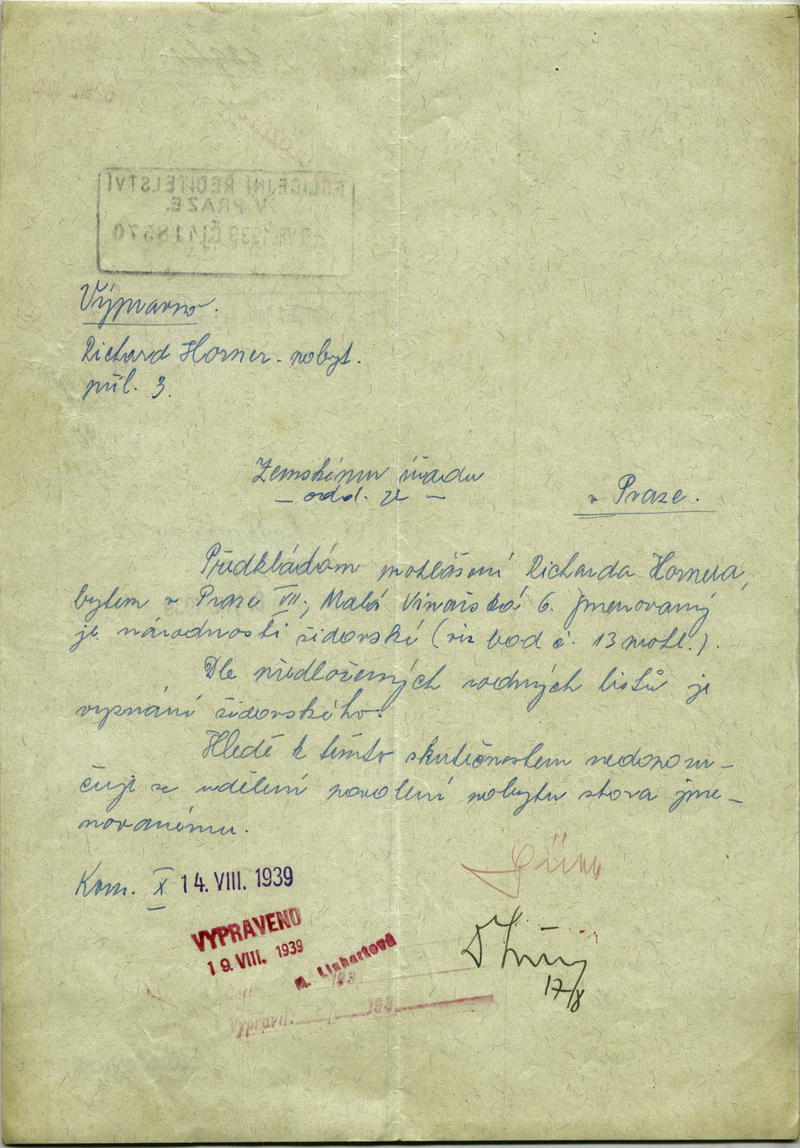 POLICEJNÍ ŘEDITELSTVÍ
V PRAZE.
VIII. 1939 Čj 418570
Výpravno:
Richard Horner - pobyt.
příl. 3.
Zemskému úřadu
— odd.
v Praze.
Předkládám prohlášení Richarda Hornera,
bytem v Praze VII, Malá Vinařská 6. Jmenovaný
je národnosti židovské (viz bod č. 13 prohl.).
Dle předložených rodných listů je
vyznání židovského.
Hledě k těmto skutečnostem nedoporu-
čuji se udělení povolení pobytu shora jme-
novanému.
Kom. X 14. VIII. 1939
VYPRAVENO
19. VIII. 1939
M. Linhartová
193
Vypravil: 193
17/8